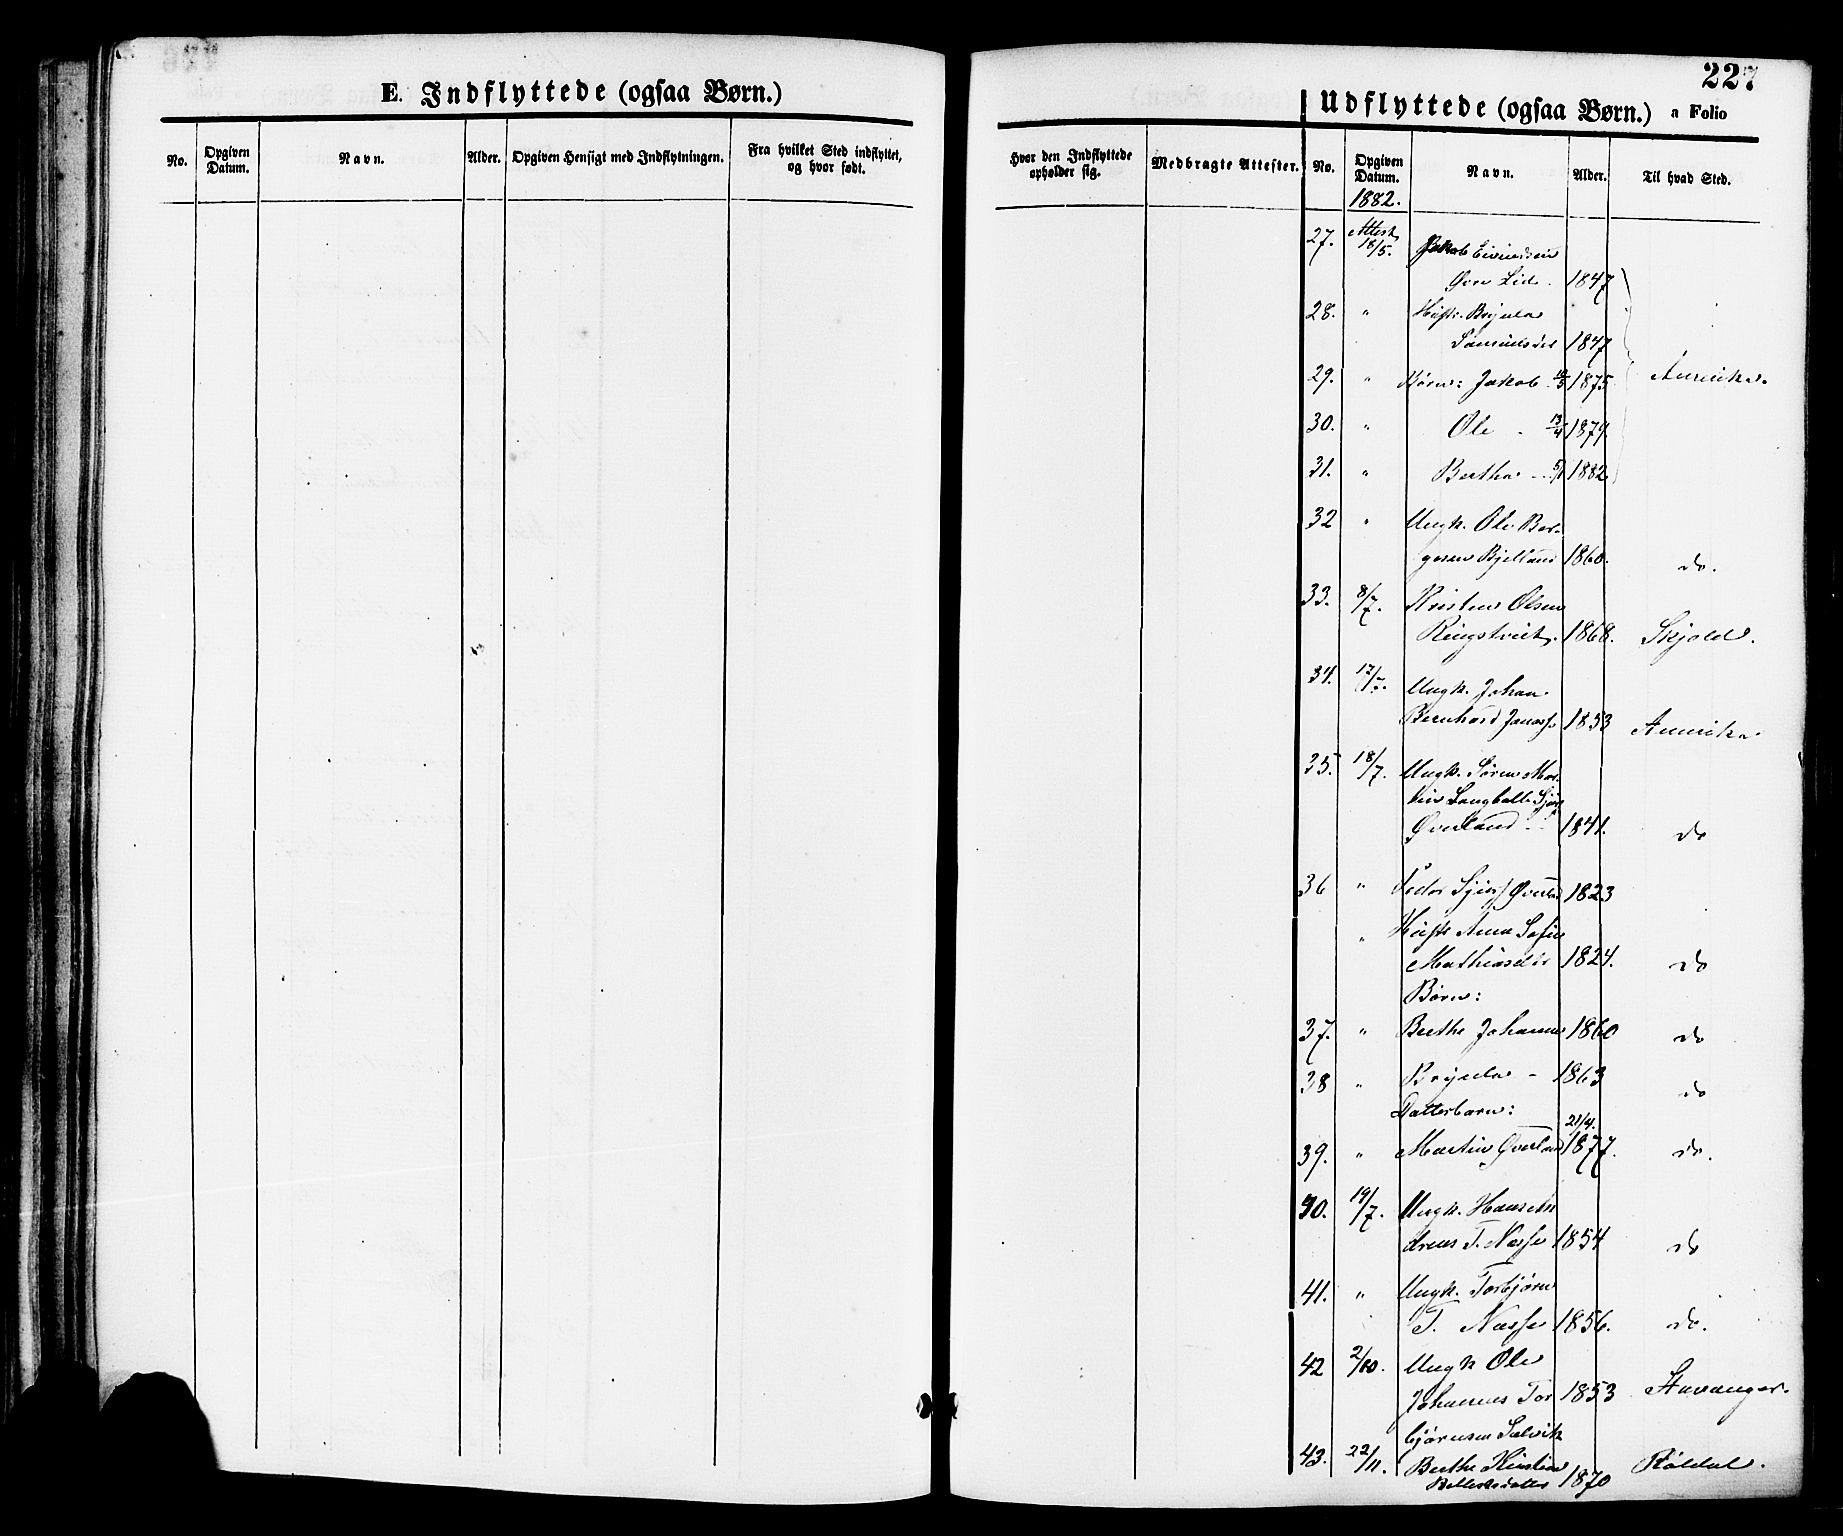 E. Indflyttede (ogsaa Børn.)
No. Opgiven Datum. Navn. Alder. Opgiven Hensigt med Indflytningen. Fra hvilket Sted indflyttet, og hvor født.
227
Udflyttede (ogsaa Børn.) a Folio
Hvor den Indflyttede opholder sig. Medbragte Attester. No. Opgiven Datum. Navn. Alder. Til hvad Sted.
1882.
27. Attest 18/5. Jakob Eivindsen
Øvre Lid. 1847
28. " Hustr. Brynla
Samuelsdtr 1847
29. " Børn: Jakob 1875 Amerika.
30. " Ole - 13/4 1879.
31. " Bertha - 5/1 1882
32 " Ungk. Ole Bør-
gesen Bjelland 1860. do.
33. 8/7. Kristen Olsen
Ringstveit. 1868. Skjold.
34. 17/7. Ungk. Johan
Bernhard Janass. 1853 Amerika
35. 18/7. Ungk. Søren Mar-
tin Langballe Sjurs.
Øverland - 1841. do
36 " Peder Sjurs. Øverland 1823
" Hustr Anna Sofie
Mathiasdtr 1824. do
Børn:
37. " Berthe Johanne 1860 do
38 " Brynla - 1863 do
Datterbarn: 21/4.
39. " Martin Øverland 1877. do.
40. 19/7. Ungk. Hans An
dreas T. Næsse 1854 do
41. " Ungk. Torbjørn
T. Næsse 1856. do.
42 2/10. Ungk Ole
Johannes Tor 1853 Stavanger.
bjørnsen Selvik
43. 22/11. Berthe Kirstine 1870 Røldal.